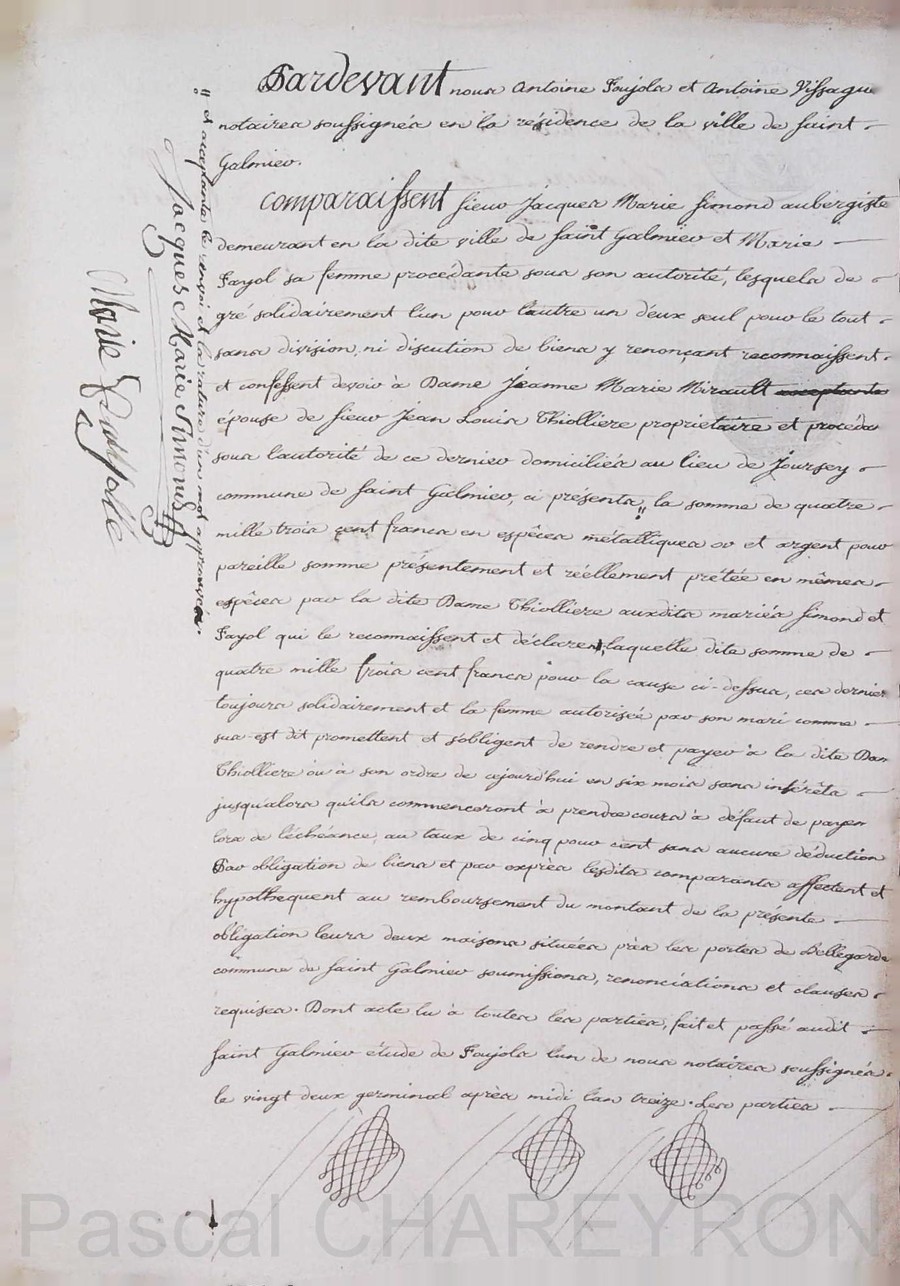 Pardevant nous Antoine Poujola et Antoine Vissague
notaires soussignés en la résidence de la ville de saint
Galmier.
comparaissent sieur Jacques Marie Simond aubergiste
demeurant en la dite ville de saint Galmier et Marie
Fayol sa femme procédante sous son autorité, lesquels de
gré solidairement l'un pour l'autre un d'eux seul pour le tout
sans division, ni discution de biens y renonçant reconnaissent
et confessent devoir à Dame Jeanne Marie Mirault acceptante
épouse de sieur Jean Louis Thiolliere propriétaire et procéda
sous l'autorité de ce dernier domiciliés au lieu de Joursey
commune de saint Galmier, ci présents " la somme de quatre
mille trois cent francs en espèces métalliques or et argent pour
pareille somme présentement et réellement prétée en mêmes
espèces par la dite Dame Thiolliere auxdits mariés Simond et
Fayol qui le reconnaissent et déclarent laquelle dite somme de
quatre mille trois cent francs pour la cause ci-dessus, ces dernier
toujours solidairement et la femme autorisée par son mari comme
sus-est dit promettent et s'obligent de rendre et payer à la dite Dam
Thiolliere ou à son ordre de cejourd'hui en six mois sans intérêts
jusqu'alors qu'ils commenceront à prendre cours à défaut de payer
lors de l'échéance au taux de cinq pour cent sans aucune déduction
Par obligation de biens et par exprès lesdits comparants affectent et
hypothequent au remboursement du montant de la présente
obligation leurs deux maisons situées près les portes de Bellegarde
commune de saint Galmier soumissions, renonciations et clauses
requises. Dont acte lu à toutes les parties, fait et passé audit
saint Galmier étude de Poujola l'un de nous notaires soussignés
le vingt deux germinal après midi l'an treize. Les parties
" et acceptante le renvoi et la rature d'un mot approuvés.
Jacques Marie Simond
Marie
Pascal CHAREYRON